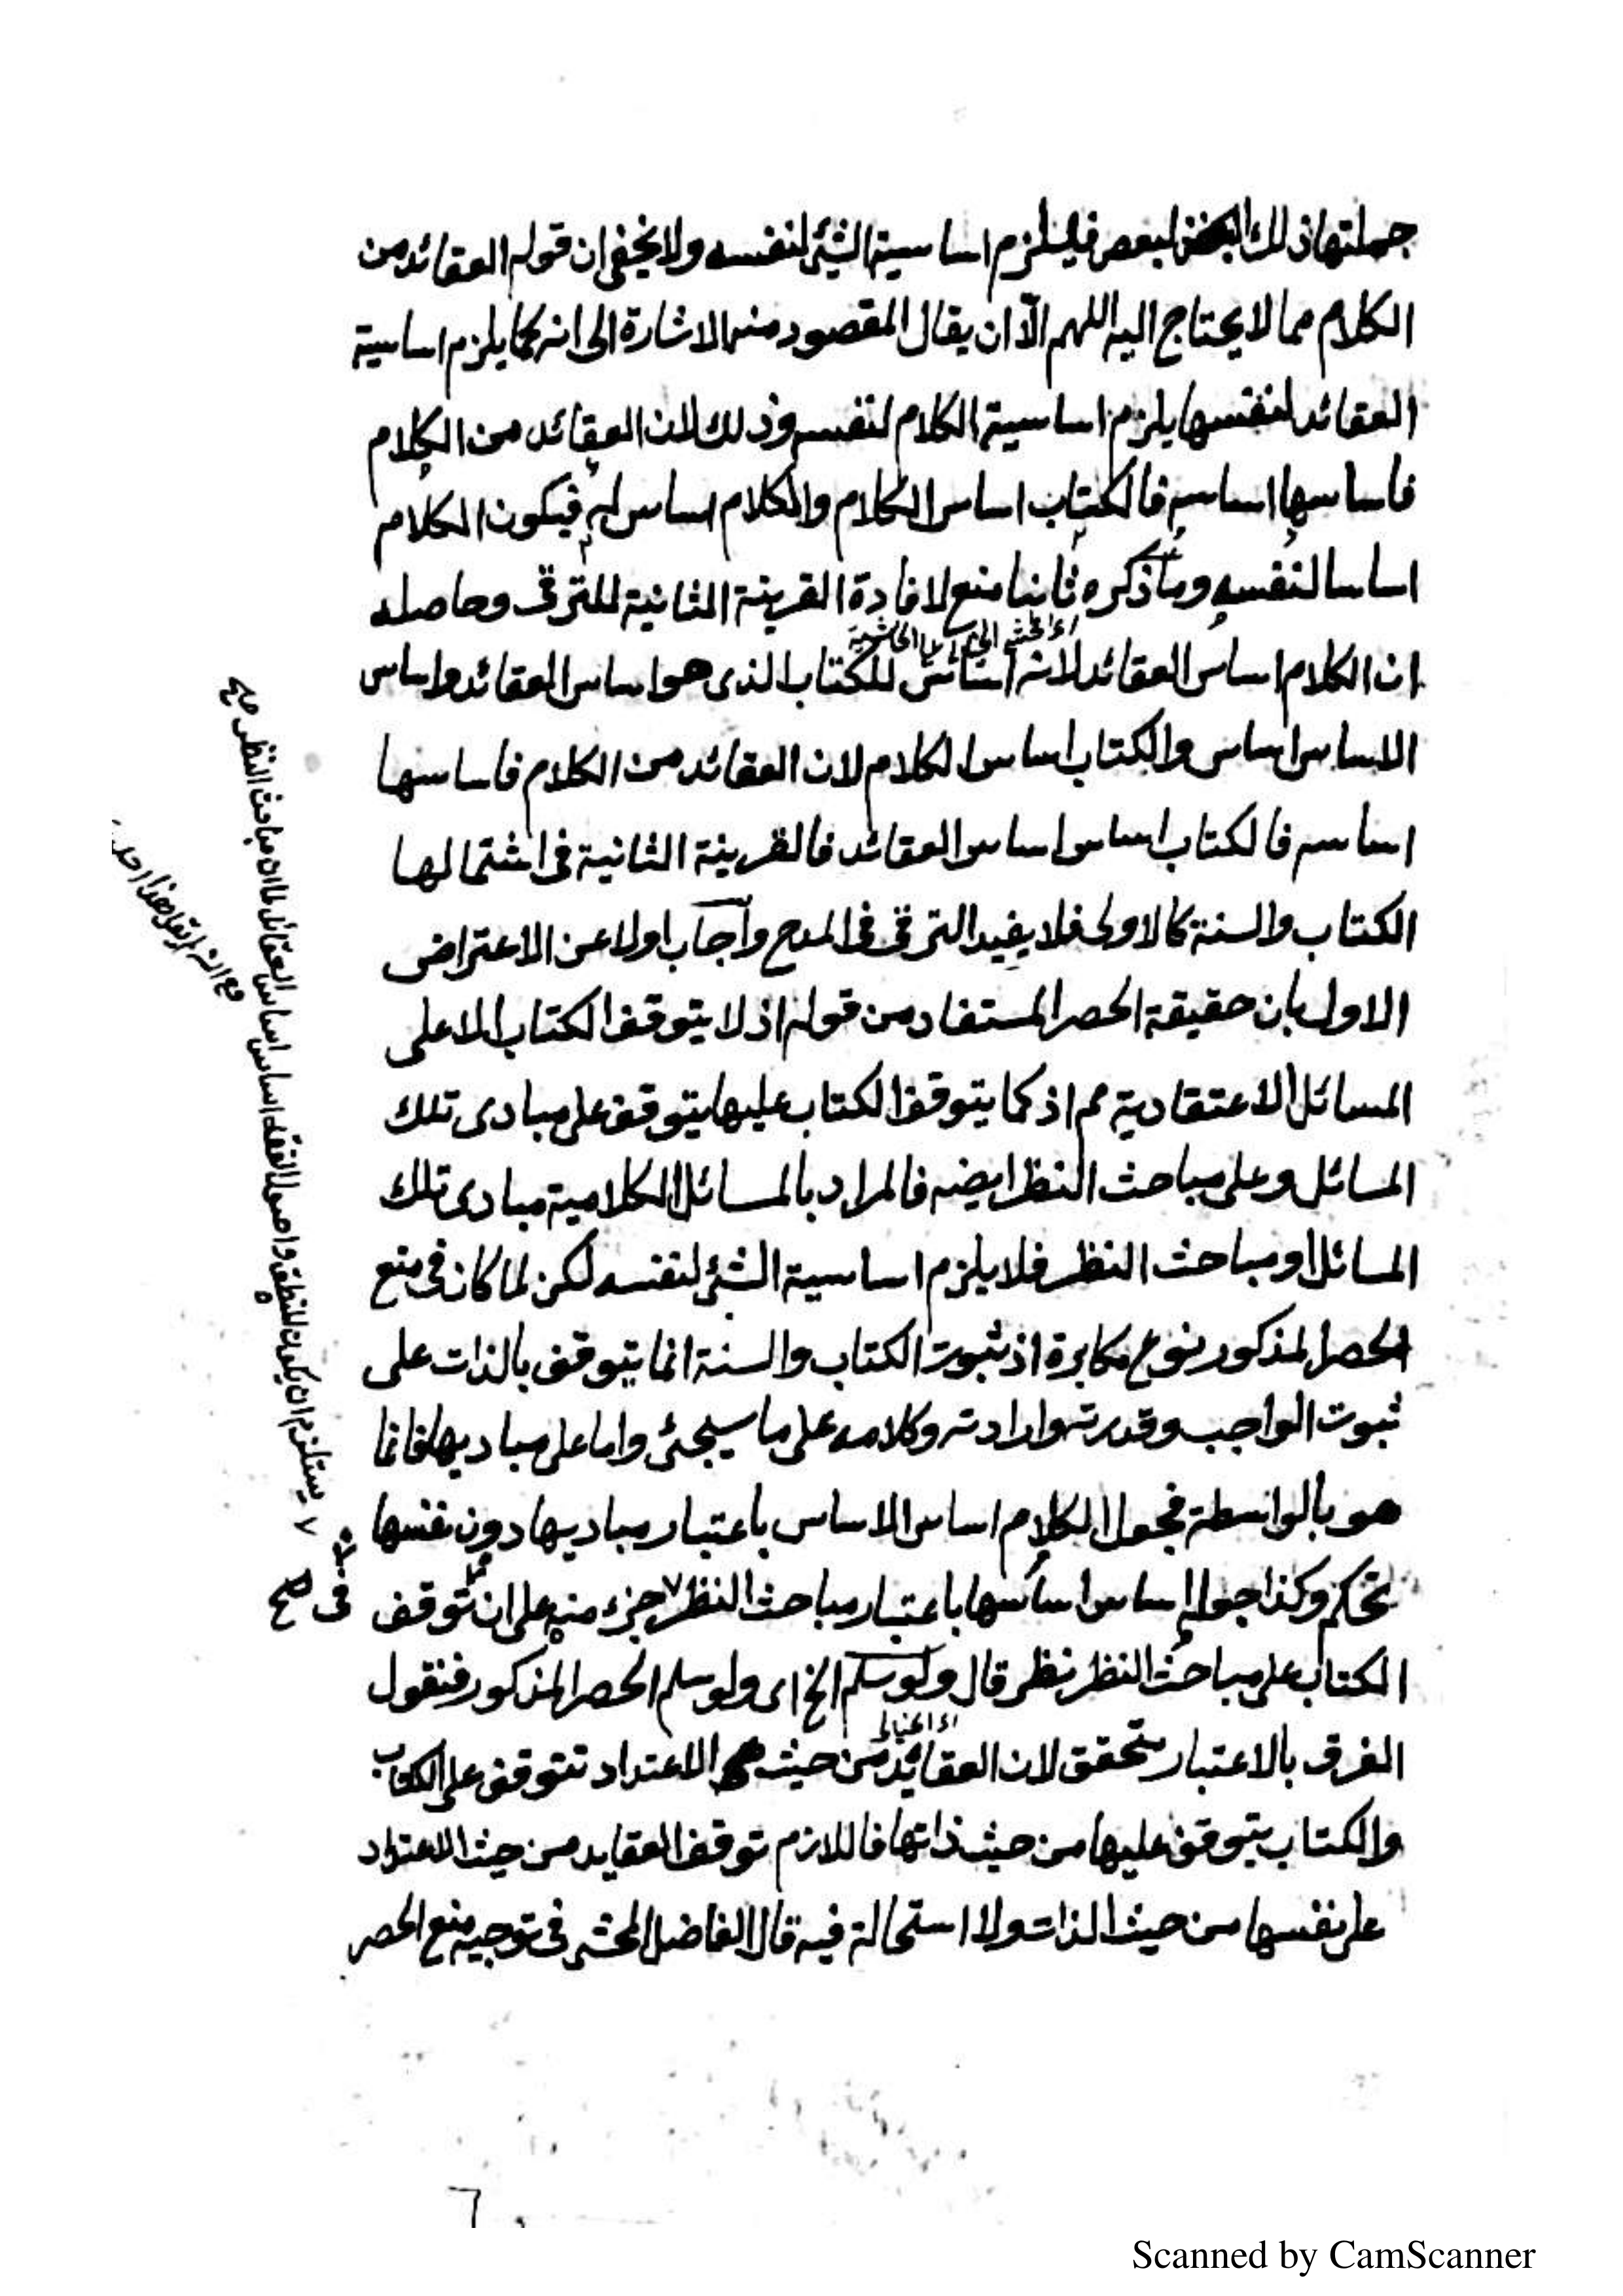 جملتها ذلك البعض لبعض فيلزم اساسية الشئ لنفسه ولا يخفى ان قوله العقائد من
الكلام مما لا يحتاج اليه اللهم الّا ان يقال المقصود منه الاشارة الى انه كما يلزم اساسية
العقائد لنفسها يلزم اساسية الكلام لنفسه وذلك لان العقائد من الكلام
فاساسها اساسه فالكتاب اساس الكلام والكلام اساس له فيكون الكلام
اساسا لنفسه وما ذكره ثانيا منع لافادة القرينة الثانية للترقى وحاصله
ان الكلام اساس العقائد لانه اساس للكتاب الذى هو اساس العقائد واساس
الاساس اساس والكتاب اساس الكلام لان العقائد من الكلام فاساسها
اساسه فالكتاب اساس اساس العقائد فالقرينة الثانية فى اشتمالها
الكتاب والسنة كالاولى فلا يفيد الترقى فى المدح واجاب اولا عن الاعتراض
الاول بان حقيقة الحصر المستفاد من قوله اذ لا يتوقف الكتاب الا على
المسائل الاعتقادية مم اذ كما يتوقف الكتاب عليها يتوقف على مبادى تلك
المسائل وعلى مباحث النظر ايضه فالمراد بالمسائل الكلامية مبادى تلك
المسائل او مباحث النظر فلا يلزم اساسية الشئ لنفسه لكن لما كان فى منع
الحصر المذكور نوع مكابرة اذ ثبوت الكتاب والسنة انما يتوقف بالذات على
ثبوت الواجب وقدرته وارادته وكلامه على ما سيجئ واما على مباديها فانما
هو بالواسطة فجعل الكلام اساس الاساس باعتبار مباديها دون نفسها
تحكم وكذا جعله اساس اساسها باعتبار مباحث النظر ٧ جزء منه على ان توقف
الكتاب على مباحث النظر نظر قال ولو سلم الخ اى ولو سلم الحصر المذكور فنقول
الفرق بالاعتبار متحقق لان العقائد من حيث الاعتداد تتوقف على الكتاب
والكتاب يتوقف عليها من حيث ذاتها فاللازم توقف العقايد من حيث الاعتداد
على نفسها من حيث الذات ولا استحالة فيه قال الفاضل المحشى فى توجيه منع الحصر
٧ يستلزم ان يكون المنطق واصول الفقه اساس اساس العقائد لما ان مباحث النظر صح
فى صح
٦
Scanned by CamScanner